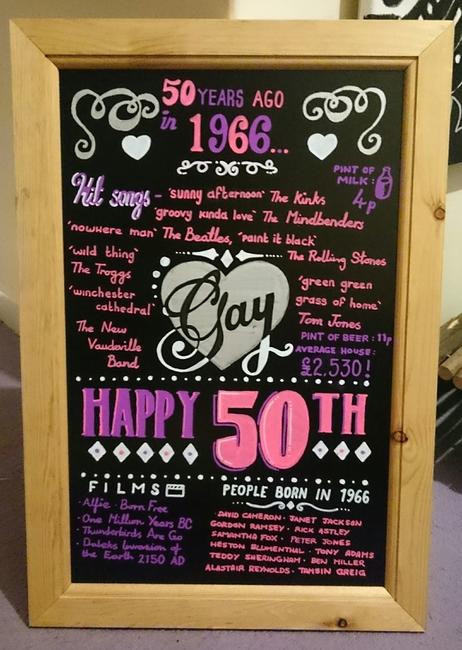 50 YEARS AGO
in 1966...
PINT OF
MILK:
4p
Hit songs - 'sunny afternoon' The Kinks
'groovy kinda love' The Mindbenders
'nowhere man' The Beatles, 'paint it black'
The Rolling Stones
'wild thing'
The Troggs
'winchester
cathedral'
The New
Vaudeville
Band
Gay
'green green
grass of home'
Tom Jones
PINT OF BEER: 11p
AVERAGE HOUSE:
£2,530!
HAPPY 50TH
FILMS
· Alfie · Born Free
· One Million Years BC
· Thunderbirds Are Go
· Daleks Invasion of
the Earth 2150 AD
PEOPLE BORN IN 1966
· DAVID CAMERON · JANET JACKSON
GORDON RAMSEY · RICK ASTLEY
SAMANTHA FOX · PETER JONES
HESTON BLUMENTHAL · TONY ADAMS
TEDDY SHERINGHAM · BEN MILLER
ALASTAIR REYNOLDS · TAMSIN GREIG